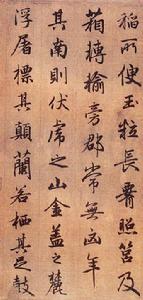 稻所便玉粒長腰照筥及
箱轉輸旁郡常無凶年
其南則伏虎之山金蓋之麓
浮屠標其顛蘭若棲其足鼓